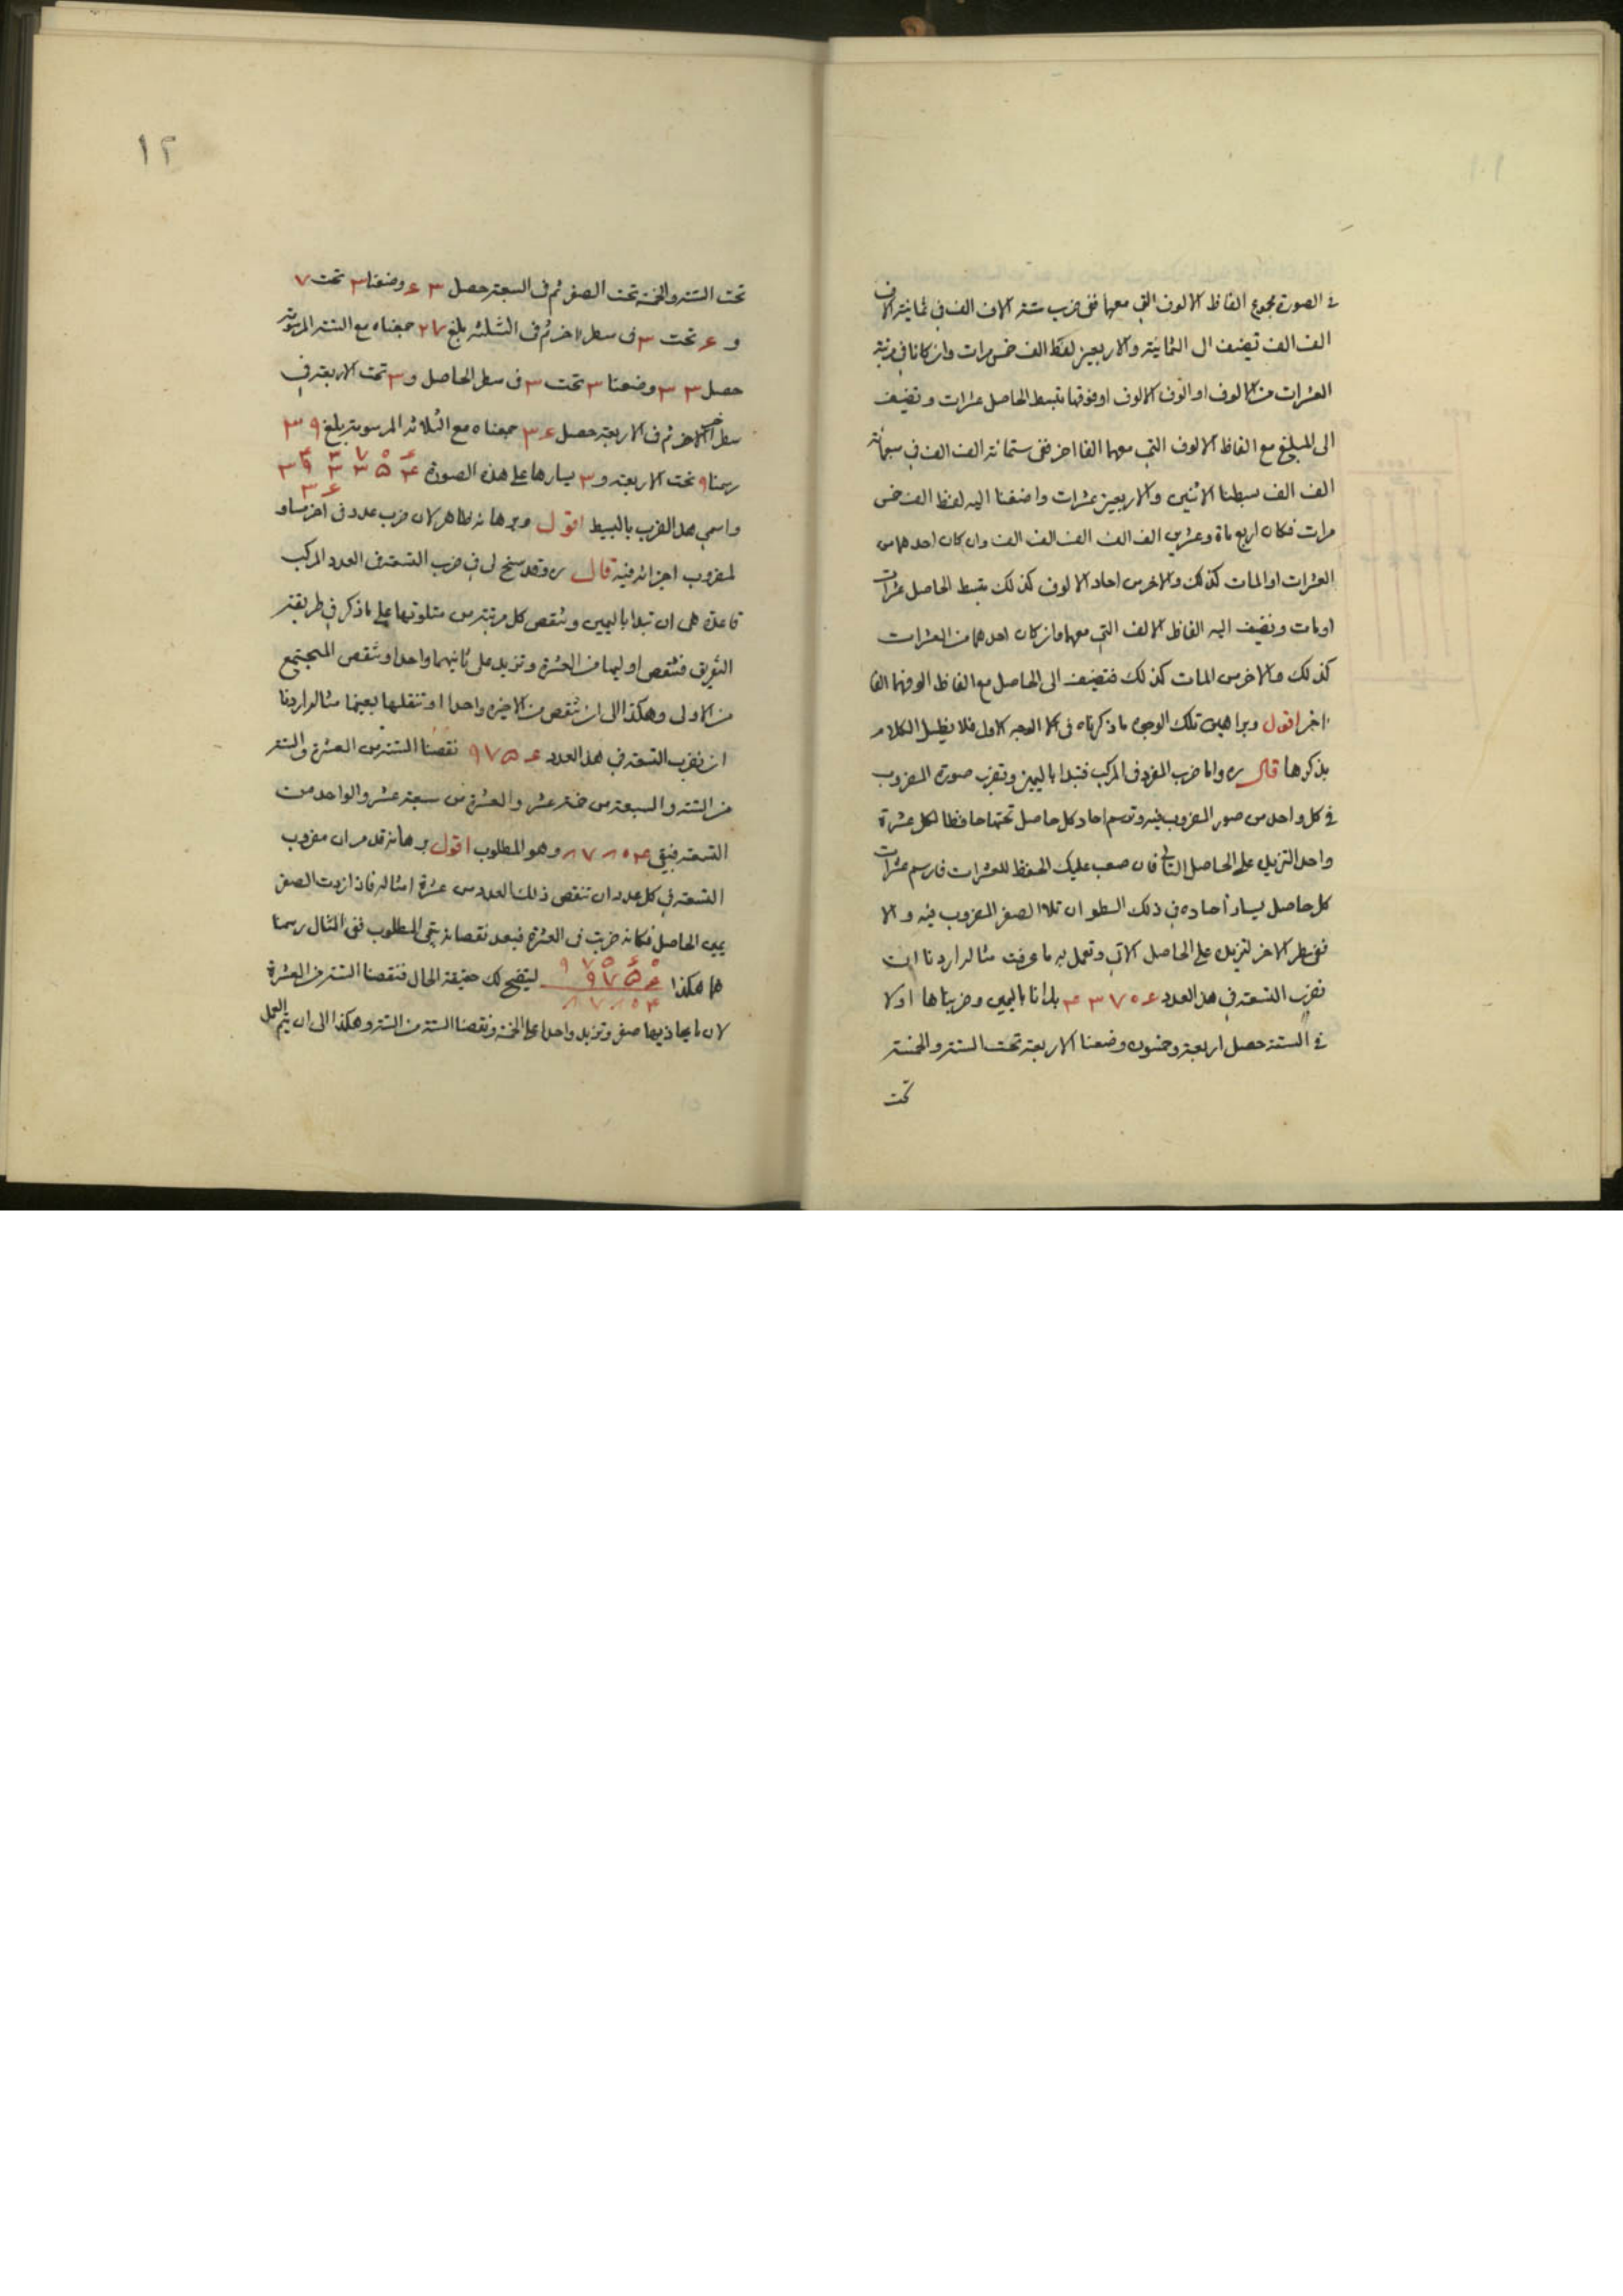 فى الصورة مجموع الفاظ الالوف التى معهما ففى ضرب ستة الاف الف فى ثمانية الاف
الف الف تضيف الى الثمانية والاربعين لفظ الف خمس مرات وان كانا فى مرتبة
العشرات من الالوف او الوف الالوف او فوقها تبسط الحاصل عشرات وتضيف
الى المبلغ مع الفاظ الالوف التى معهما الفا اخر ففى ستمائة الف الف فى سبعمائة
الف الف بسطنا الاثنين والاربعين عشرات واضفنا اليه لفظ الف خمس
مرات فكان اربع مأة وعشرين الف الف الف الف الف وان كان احدهما من
العشرات او المات كذلك والاخر من احاد الالوف كذلك تبسط الحاصل عشرات
او مات وتضيف اليه الفاظ الالف التى معهما وان كان احدهما من العشرات
كذلك والاخر من المات كذلك فتضيف الى الحاصل مع الفاظ الوفهما الفا
اخر اقول وبراهين تلك الوجوه ما ذكرناه فى الوجه الاول فلا نطيل الكلام
بذكرها قال ره واما ضرب المفرد فى المركب فتبدا باليمين وتضرب صورة المضروب
فى كل واحد من صور المضروب فيه وترسم احاد كل حاصل تحتها حافظا لكل عشرة
واحدا لتزيد على الحاصل التالى فان صعب عليك الحفظ للعشرات فارسم عشرات
كل حاصل يسار أحاده فى ذلك السطر ان تلا الصفر المضروب فيه والا
ففى سطر الاخر لتزيده على الحاصل الاتى وتعمل به ما عرفت مثاله اردنا ان
نضرب التسعة فى هذا العدد ۴۳۷۰۶ بدانا باليمين وضربناها اولا
فى الستة حصل اربعة وخمسون وضعنا الاربعة تحت الستة والخمسة
تحت
۱۲
تحت الستة والخمسة تحت الصفر ثم فى السبعة حصل ۶۳ وضعنا ۳ تحت ۷
و ۶ تحت ۳ فى سطر اخر ثم فى الثلثة بلغ ۲۷ جمعناه مع الستة المرسومة
حصل ۳۳ وضعنا ۳ تحت ۳ فى سطر الحاصل و ۳ تحت الاربعة فى
سطر الاخر ثم فى الاربعة حصل ۳۶ جمعناه مع الثلاثة المرسومة بلغ ۳۹
رسمنا ۹ تحت الاربعة و ۳ يسارها على هذه الصورة
واسمى هذا الضرب بالبسيط اقول وبرهانه ظاهر لان ضرب عدد فى اخر مساو
لمضروب اجزائه فيه قال ره وقد سنح لى فى ضرب التسعة فى العدد المركب
قاعدة هى ان تبدا باليمين وتنقص كل مرتبة من متلوتها على ما ذكر فى طريقة
التفريق فتنقص اوليهما من العشرة وتزيد على ثانيهما واحدا وتنقص المجتمع
من الاولى وهكذا الى ان تنقص من الاخيرة واحدا او تنقلها بعينها مثاله اردنا
ان نضرب التسعة فى هذا العدد ۹۷۵۶ نقصنا الستة من العشرة والستة
من الستة والسبعة من خمسة عشر والعشرة من سبعة عشر والواحد من
التسعة فبقى ۸۷۸۰۴ وهو المطلوب اقول برهانه قد مر ان مضروب
التسعة فى كل عدد ان تنقص ذلك العدد من عشرة امثاله فاذا زدت الصفر
يمين الحاصل فكانه ضربت فى العشرة فبعد نقصانه بقى المطلوب ففى المثال رسمنا
هما هكذا ۹۷۵۶۰ ۹۷۵۶ ۸۷۸۰۴ ليتضح لك حقيقة الحال فنقصنا الستة من العشرة
لان ما يحاذيها صفر وتزيد واحدا على الخمسة ونقصنا الستة من الستة وهكذا الى ان يتم العمل